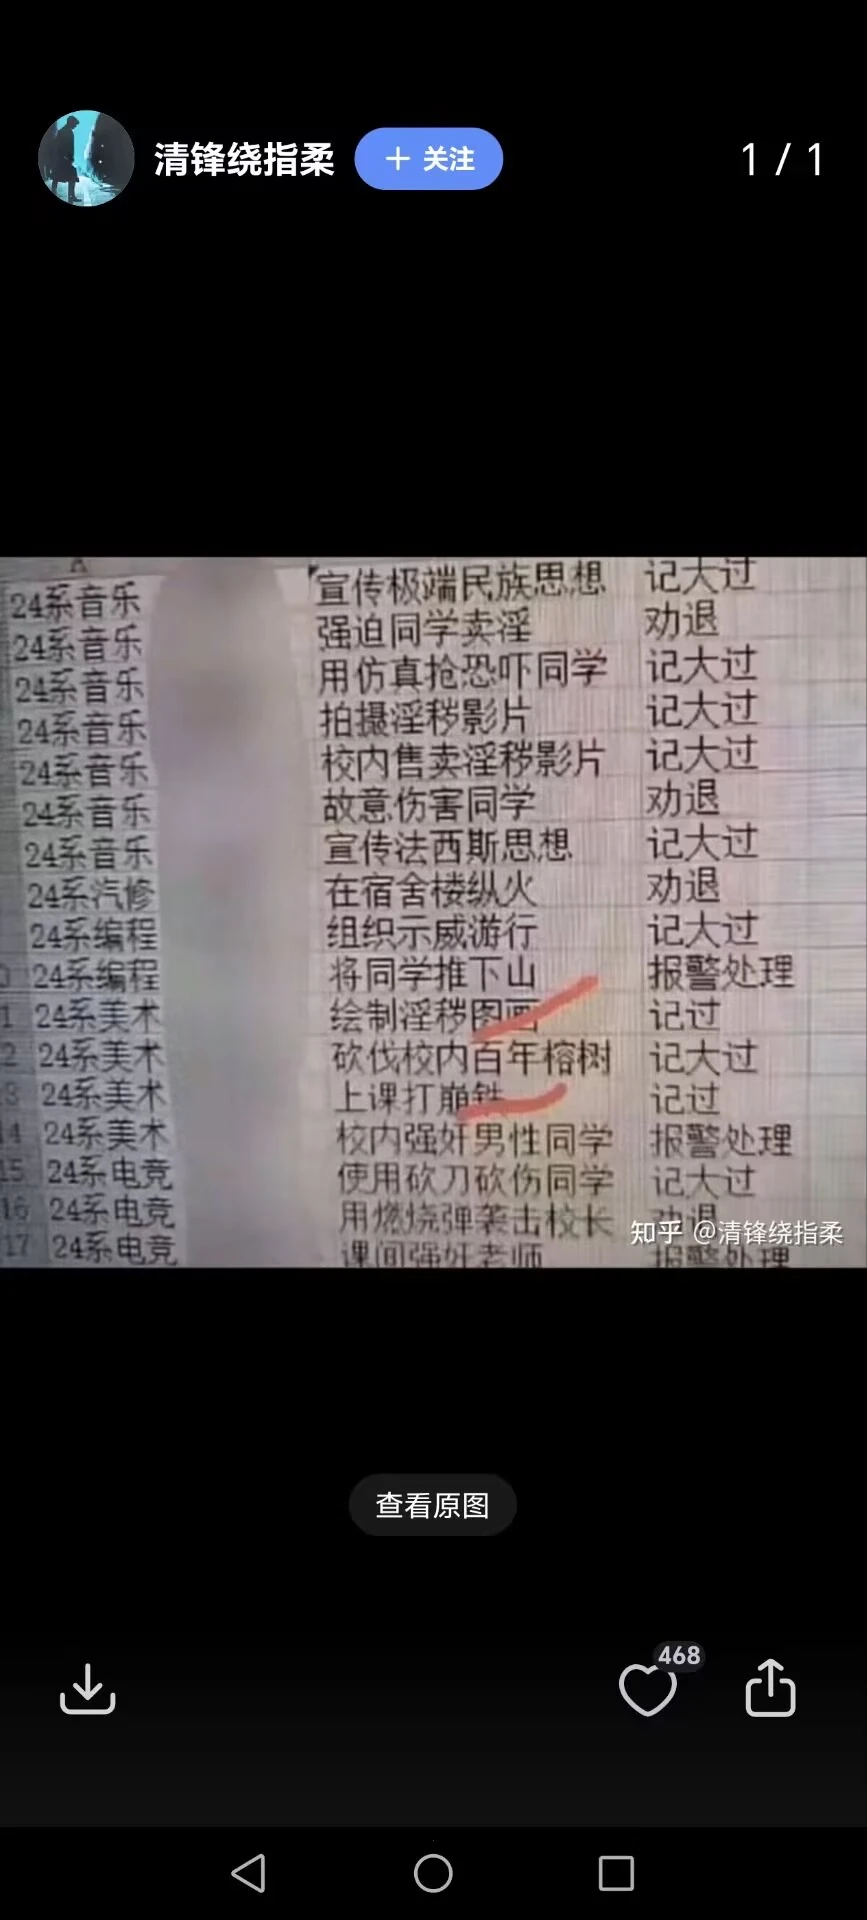 清锋绕指柔
+ 关注
1 / 1
A
24系音乐 宣传极端民族思想 记大过
24系音乐 强迫同学卖淫 劝退
24系音乐 用仿真抢恐吓同学 记大过
24系音乐 拍摄淫秽影片 记大过
24系音乐 校内售卖淫秽影片 记大过
24系音乐 故意伤害同学 劝退
24系音乐 宣传法西斯思想 记大过
24系汽修 在宿舍楼纵火 劝退
24系编程 组织示威游行 记大过
0 24系编程 将同学推下山 报警处理
1 24系美术 绘制淫秽图画 记过
2 24系美术 砍伐校内百年榕树 记大过
3 24系美术 上课打崩铁 记过
14 24系美术 校内强奸男性同学 报警处理
15 24系电竞 使用砍刀砍伤同学 记大过
16 24系电竞 用燃烧弹袭击校长 劝退
17 24系电竞 课间强奸老师 报警处理
知乎 @清锋绕指柔
查看原图
468